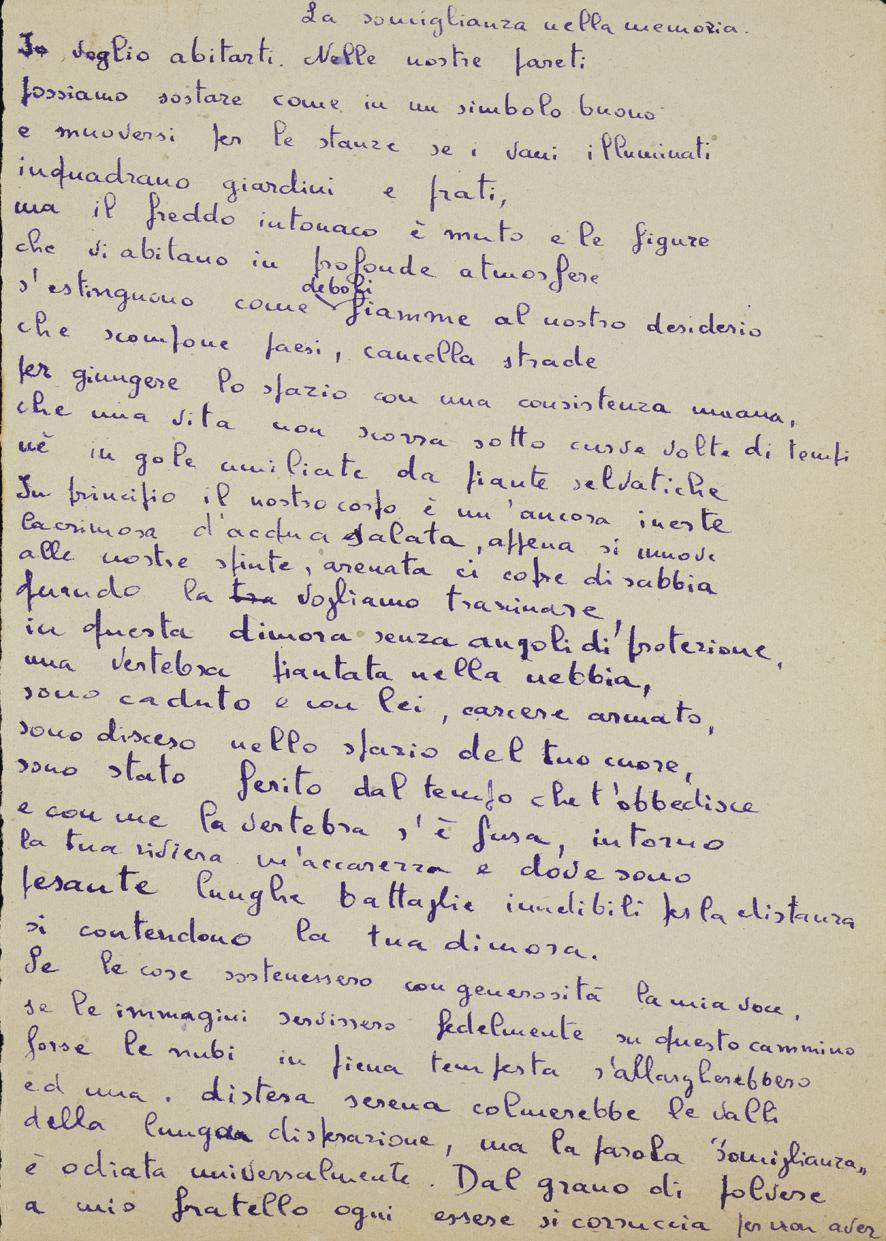 La somiglianza nella memoria.
Io voglio abitarti. Nelle nostre pareti
possiamo sostare come in un simbolo buono
e muoversi per le stanze se i vani illuminati
inquadrano giardini e prati,
ma il freddo intonaco è muto e le figure
che vi abitano in profonde atmosfere
s'estinguono come deboli fiamme al nostro desiderio
che scompone paesi, cancella strade
per giungere lo spazio con una consistenza umana,
che una vita non scorra sotto curve volte di tempi
nè in gole umiliate da piante selvatiche
In principio il nostro corpo è un'ancora inerte
lacrimosa d'acqua salata, appena si muove
alle nostre spinte, arenata ci copre di sabbia
quando la tra vogliamo trascinare,
in questa dimora senza angoli di protezione,
una vertebra piantata nella nebbia,
sono caduto e con lei, carcere armato,
sono disceso nello spazio del tuo cuore,
sono stato ferito dal tempo che t'obbedisce
e con me la vertebra s'è fusa, intorno
la tua riviera m'accarezza e dove sono
pesante lunghe battaglie inudibili per la distanza
si contendono la tua dimora.
Se le cose sostenessero con generosità la mia voce,
se le immagini servissero fedelmente su questo cammino
forse le nubi in piena tempesta s'allargherebbero
ed una distesa serena colmerebbe le valli
della lunga disperazione, ma la parola "somiglianza"
è odiata universalmente. Dal grano di polvere
a mio fratello ogni essere si corruccia per non aver